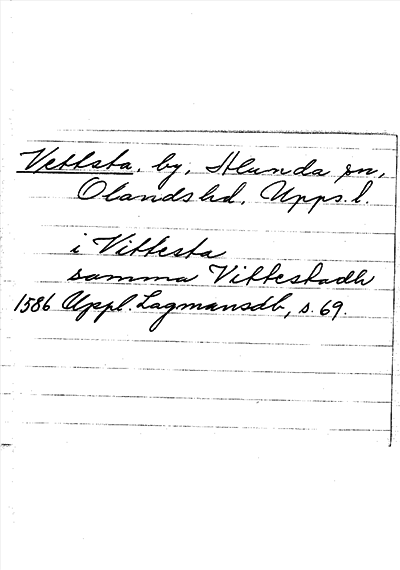 Vettsta, by, Alunda sn,
Olands hd, Upps. l.
i Vittesta
samma Vittestadh
1586 Uppl. Lagmansdb, s. 69.